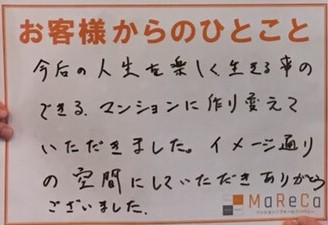 お客様からのひとこと
今后の人生を楽しく生きる事の
できる、マンションに作り変えて
いただきました。イメージ通り
の空間にしていただきありがとう
ございました。
MaReCa